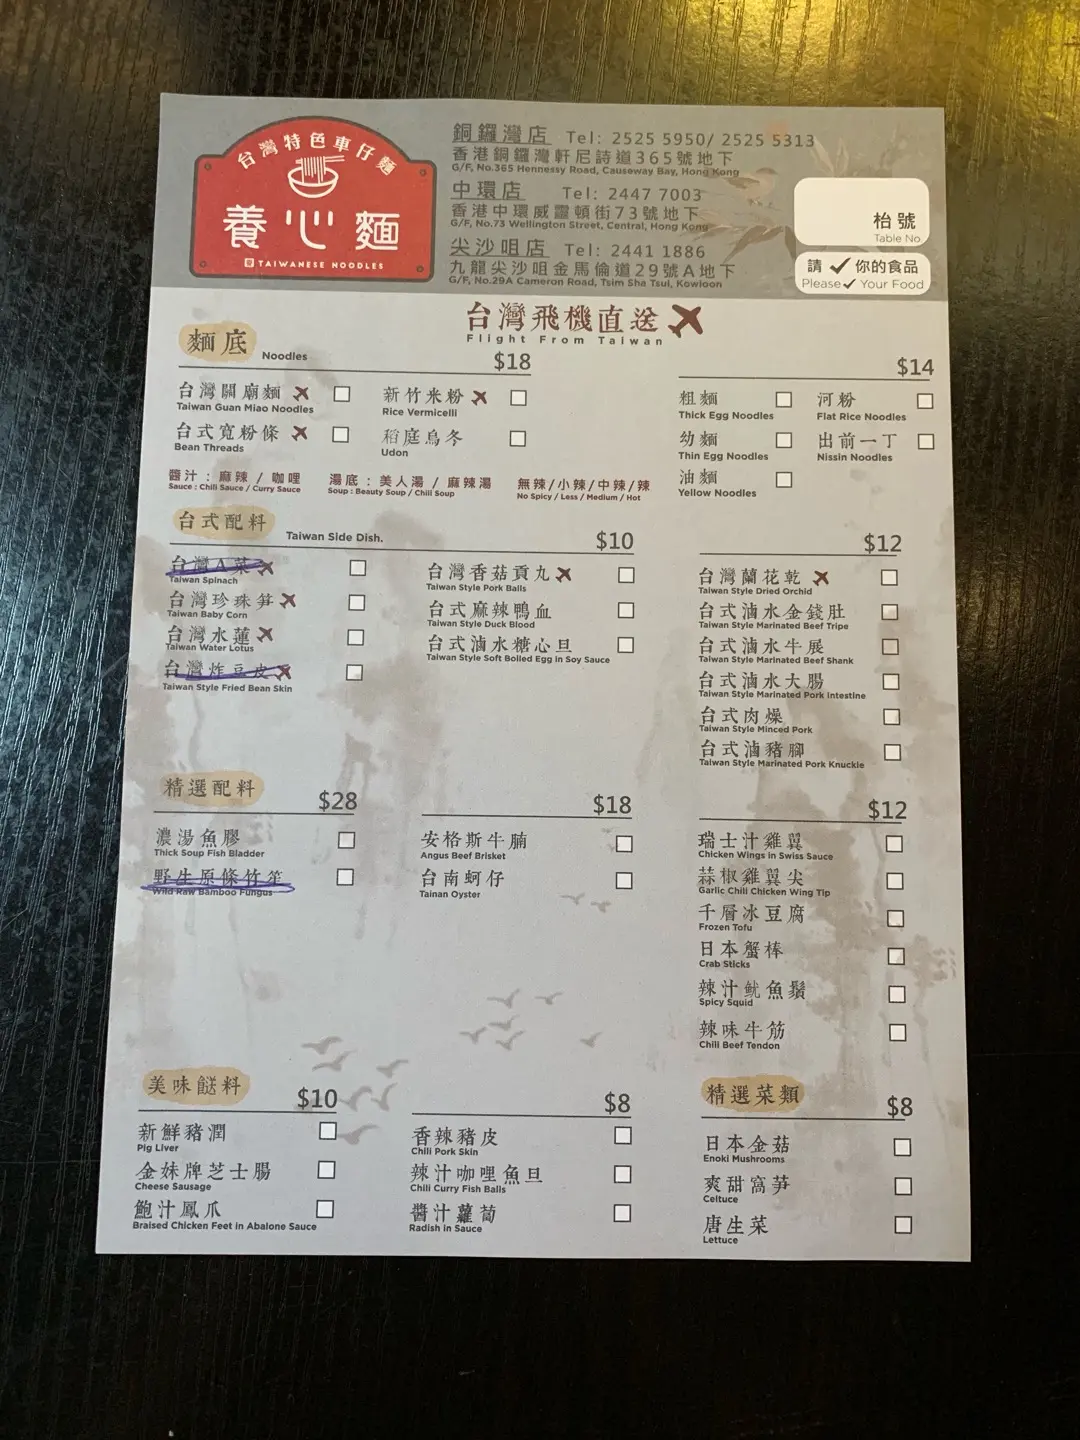 台灣特色車仔麵
養心麵
TAIWANESE NOODLES
銅鑼灣店 Tel: 2525 5950/ 2525 5313
香港銅鑼灣軒尼詩道365號地下
G/F, No.365 Hennessy Road, Causeway Bay, Hong Kong
中環店 Tel: 2447 7003
香港中環威靈頓街73號地下
G/F, No.73 Wellington Street, Central, Hong Kong
尖沙咀店 Tel: 2441 1886
九龍尖沙咀金馬倫道29號A地下
G/F, No.29A Cameron Road, Tsim Sha Tsui, Kowloon
枱號
Table No
請 ✓ 你的食品
Please ✓ Your Food
台灣飛機直送
Flight From Taiwan
麵底 Noodles $18
台灣關廟麵
Taiwan Guan Miao Noodles
新竹米粉
Rice Vermicelli
台式寬粉條
Bean Threads
稻庭烏冬
Udon
$14
粗麵
Thick Egg Noodles
河粉
Flat Rice Noodles
幼麵
Thin Egg Noodles
出前一丁
Nissin Noodles
油麵
Yellow Noodles
醬汁：麻辣 / 咖哩
Sauce : Chili Sauce / Curry Sauce
湯底：美人湯 / 麻辣湯
Soup : Beauty Soup / Chili Soup
無辣/小辣/中辣/辣
No Spicy / Less / Medium / Hot
台式配料 Taiwan Side Dish. $10
台灣A菜
Taiwan Spinach
台灣珍珠笋
Taiwan Baby Corn
台灣水蓮
Taiwan Water Lotus
台灣炸豆皮
Taiwan Style Fried Bean Skin
台灣香菇貢丸
Taiwan Style Pork Balls
台式麻辣鴨血
Taiwan Style Duck Blood
台式滷水糖心旦
Taiwan Style Soft Boiled Egg in Soy Sauce
$12
台灣蘭花乾
Taiwan Style Dried Orchid
台式滷水金錢肚
Taiwan Style Marinated Beef Tripe
台式滷水牛展
Taiwan Style Marinated Beef Shank
台式滷水大腸
Taiwan Style Marinated Pork Intestine
台式肉燥
Taiwan Style Minced Pork
台式滷豬腳
Taiwan Style Marinated Pork Knuckle
精選配料 $28
濃湯魚膠
Thick Soup Fish Bladder
野生原條竹笙
Wild Raw Bamboo Fungus
$18
安格斯牛腩
Angus Beef Brisket
台南蚵仔
Tainan Oyster
$12
瑞士汁雞翼
Chicken Wings in Swiss Sauce
蒜椒雞翼尖
Garlic Chili Chicken Wing Tip
千層冰豆腐
Frozen Tofu
日本蟹棒
Crab Sticks
辣汁魷魚鬚
Spicy Squid
辣味牛筋
Chili Beef Tendon
美味餸料 $10
新鮮豬潤
Pig Liver
金妹牌芝士腸
Cheese Sausage
鮑汁鳳爪
Braised Chicken Feet in Abalone Sauce
$8
香辣豬皮
Chili Pork Skin
辣汁咖哩魚旦
Chili Curry Fish Balls
醬汁蘿蔔
Radish in Sauce
精選菜類 $8
日本金菇
Enoki Mushrooms
爽甜窩笋
Celtuce
唐生菜
Lettuce